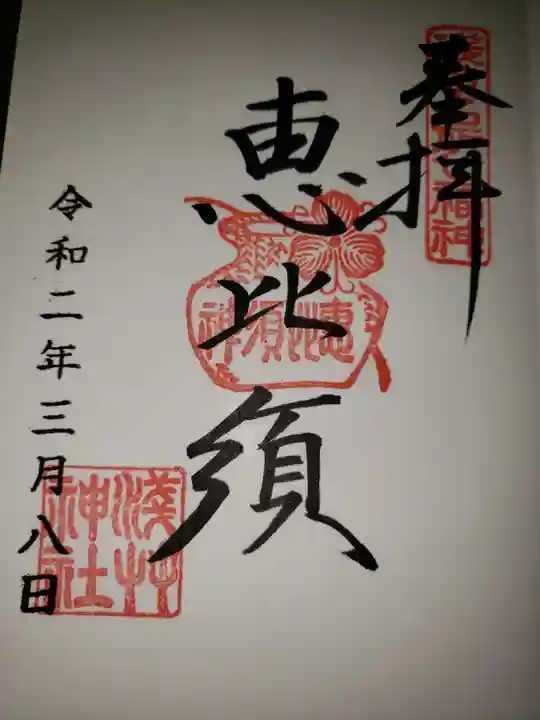 奉拝
恵比須
恵比須神
令和二年三月八日
浅草神社